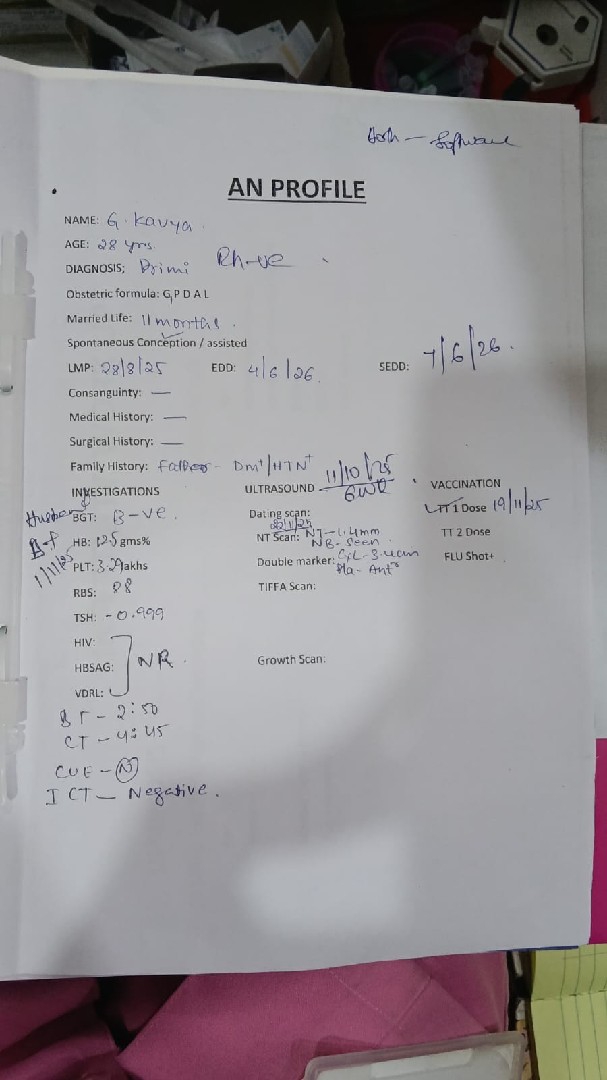 Both - Software
AN PROFILE
NAME: G. Kavya.
AGE: 28 yrs.
DIAGNOSIS; Primi Rh-ve
Obstetric formula: G,P D A L
Married Life: 11 months.
Spontaneous Conception / assisted
LMP: 28/8/25 EDD: 4/6/26. SEDD: 7/6/26.
Consanguinty: —
Medical History: —
Surgical History: —
Family History: Father - DM+/HTN+
INVESTIGATIONS ULTRASOUND 11/10/25 VACCINATION
Husband BGT: B-ve. Dating scan: TT 1 Dose 19/11/25
HB: 12.5 gms% NT Scan: NT-1.4mm TT 2 Dose
NB-Seen
1/11/25 PLT: 3.29 lakhs Double marker: CxL-3.4cm FLU Shot+
Pla-Ant
RBS: 88 TIFFA Scan:
TSH: - 0.999
HIV:
HBSAG: NR. Growth Scan:
VDRL:
BT - 2:50
CT - 4:45
CUE - N
ICT - Negative.